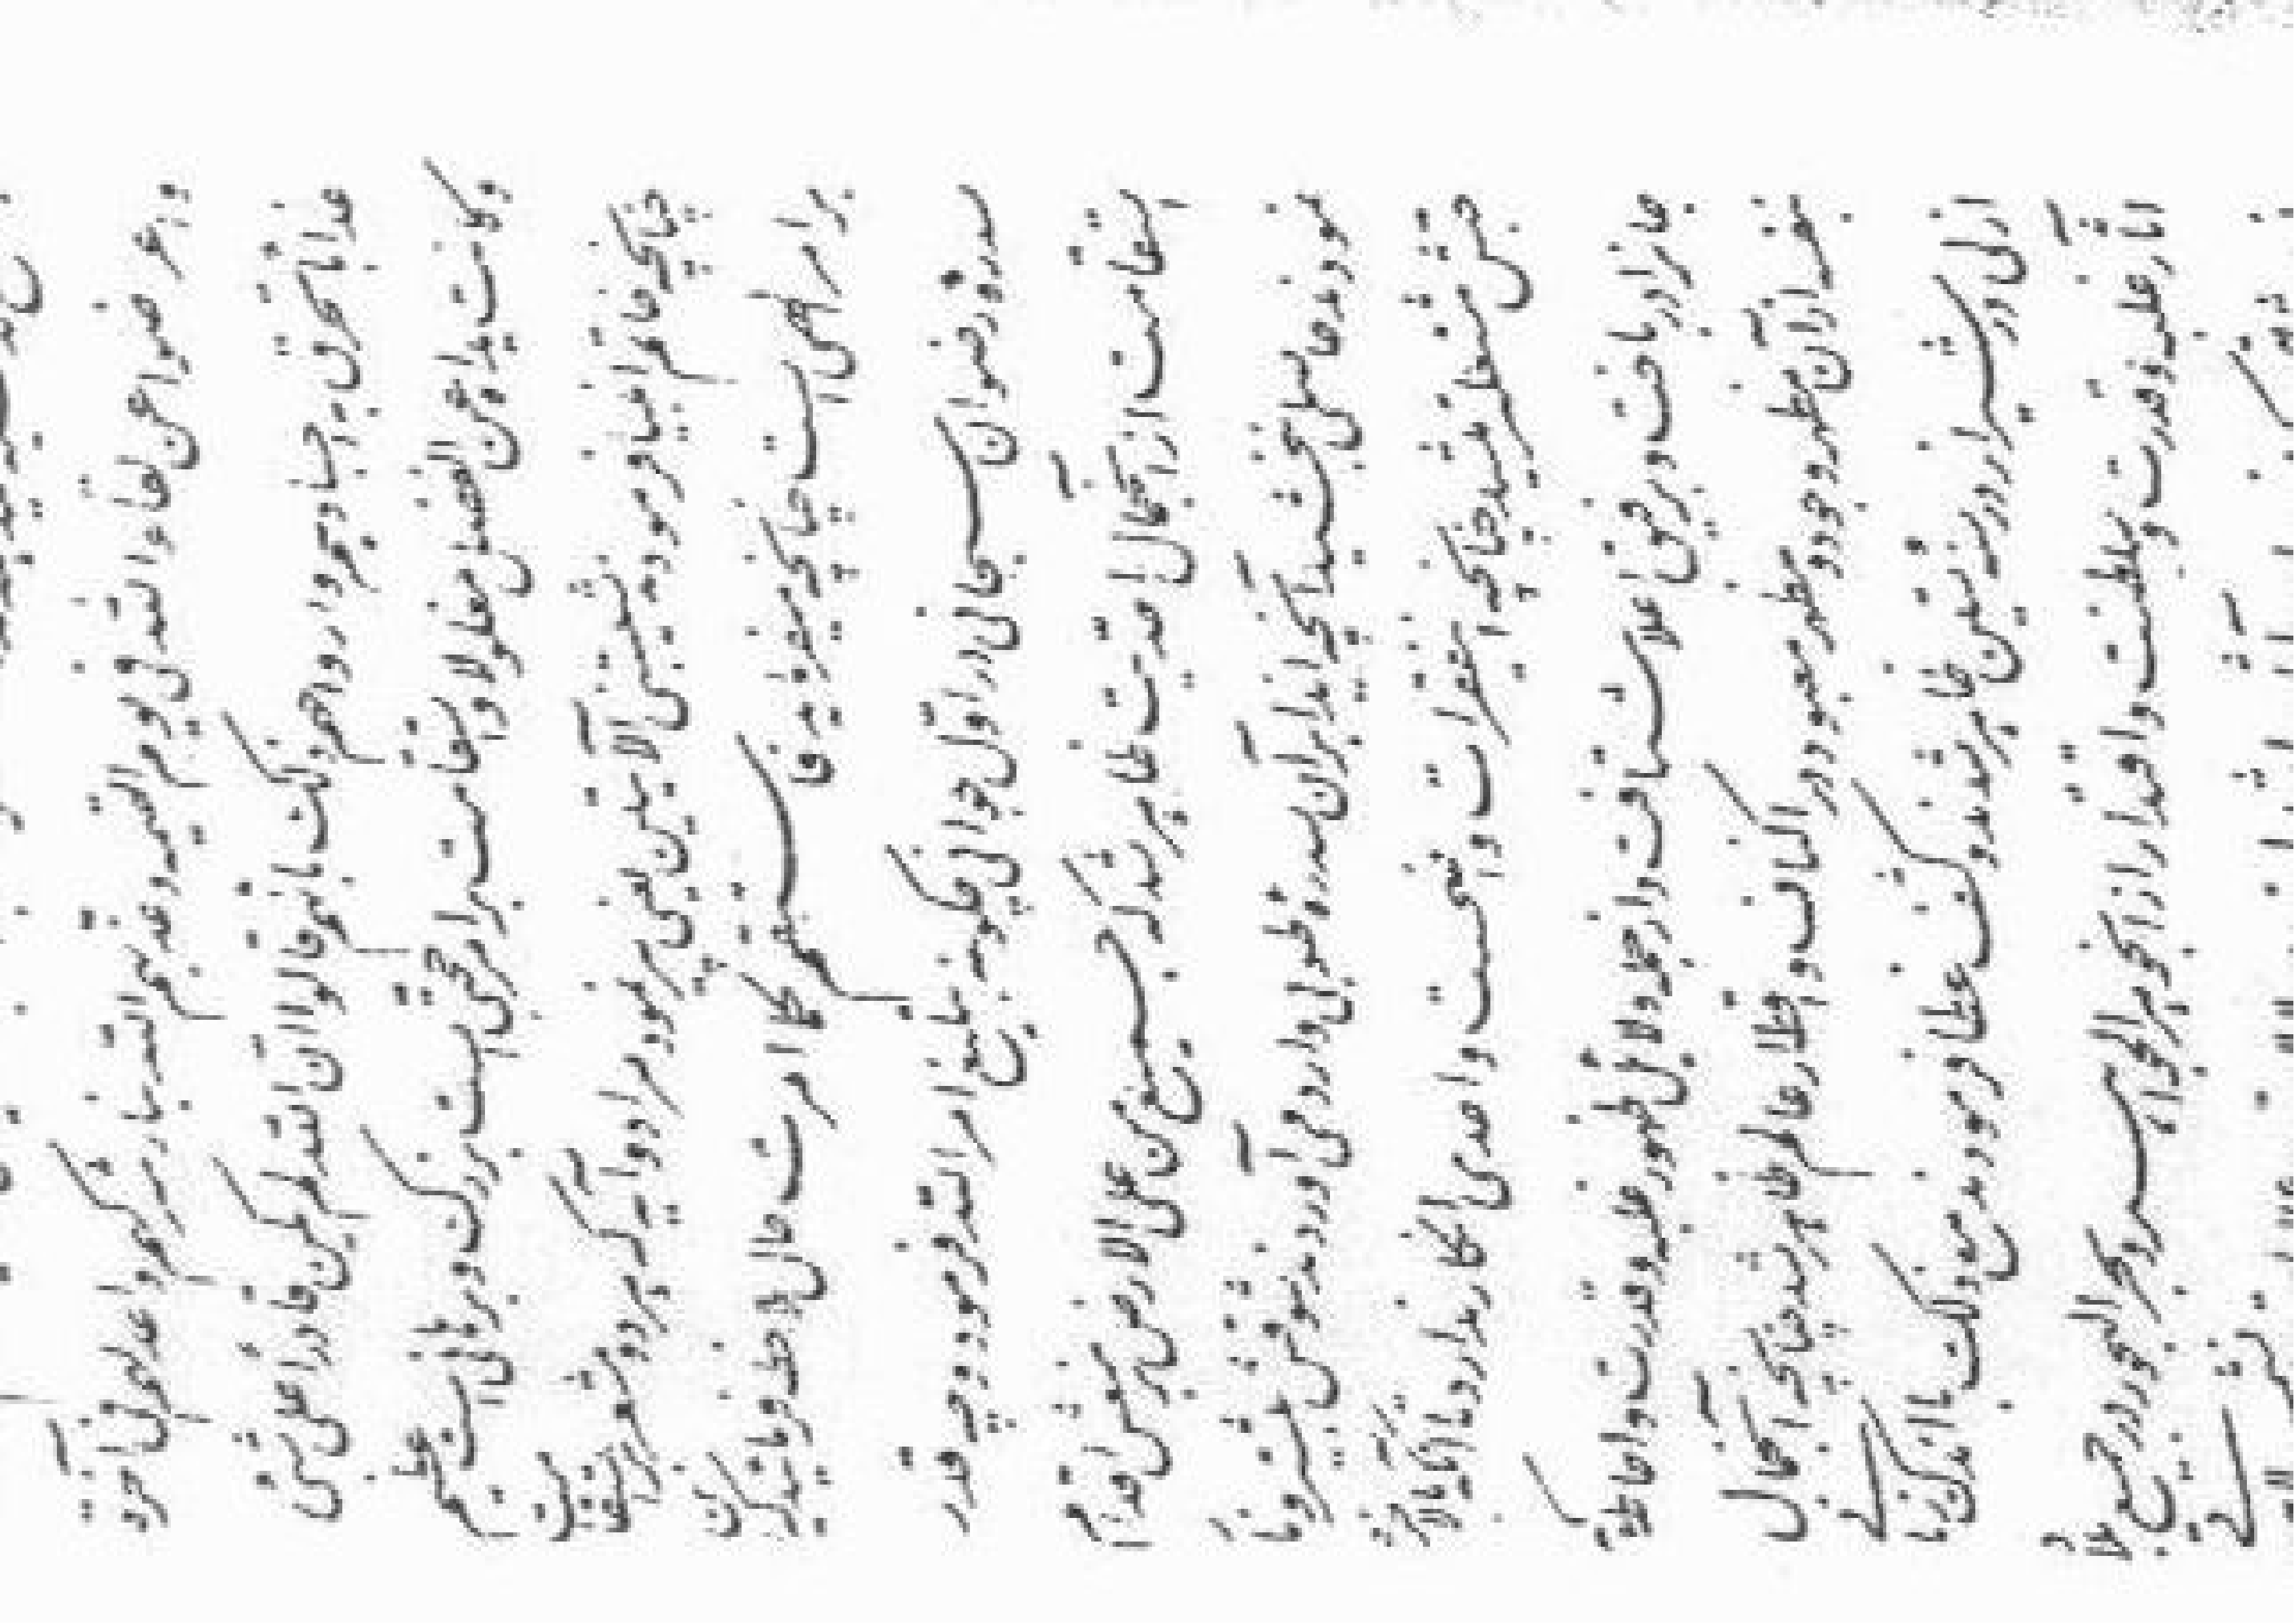 و اعرضوا عن لقاء الله فی یوم القیمة و عذبهم الله بنار شرکهم و اعد لهم فی الآخرة
عذابا تحترق به اجسادهم و ارواحهم ذلک بانهم قالوا ان الله لم یکن قادرا علی شیء
و کانت یداه عن الفضل مغلولا و استقامت بر امر حجتی است بزرگ و برهانی است عظیم
چنانچه خاتم انبیا فرمودند شیبتنی الآیتین یعنی پیر نمود مرا دو آیه که هر دو مشعر بر استقامت
بر امر الهی است چنانچه میفرماید فاستقم کما امرت حال ملاحظه فرمائید که این
سدره رضوان سبحانی در اول جوانی چگونه تبلیغ امر الله فرمود و چه قدر
استقامت از آن جمال احدیت ظاهر شد که جمیع من علی الارض بر منعش اقدام
نمودند حاصلی نبخشید آنچه ایذا بر آن سدره طوبی وارد می آوردند شوقش بیشتر و نار
حبش مشتعل تر میشد چنانچه این فقرات واضح است و احدی انکار ندارد تا آنکه بالاخره
جان را در باخت و برفیق اعلی شتافت و از جمله دلائل ظهور غلبه و قدرت و احاطه که
بنفسه از آن مظهر وجود و مظهر معبود در اکناف و اقطار عالم ظاهر شد چنانچه آن جمال
ازلی در شیراز در سنه ستین ظاهر شدند و کشف غطا فرمودند مع ذلک باندک زمانی
آثار غلبه و قدرت و سلطنت و اقتدار از آن جوهر الجواهر و بحر البحور در جمیع بلاد